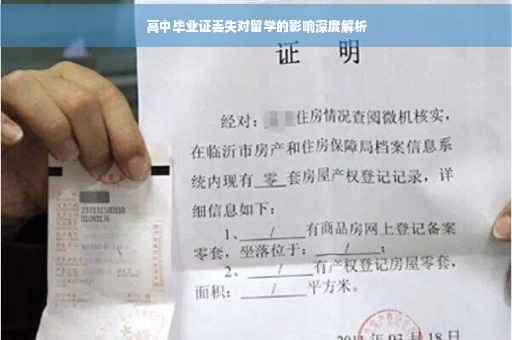 高中毕业证丢失对留学的影响深度解析
证 明
经对：住房情况查阅微机核实，
在临沂市房产和住房保障局档案信息系
统内现有 零 套房屋产权登记记录，详
细信息如下：
1、 / 有商品房网上登记备案
零套，坐落位于： / ；
2、 / 有产权登记房屋零套，
面积： / 平方米。
03 月 18 日